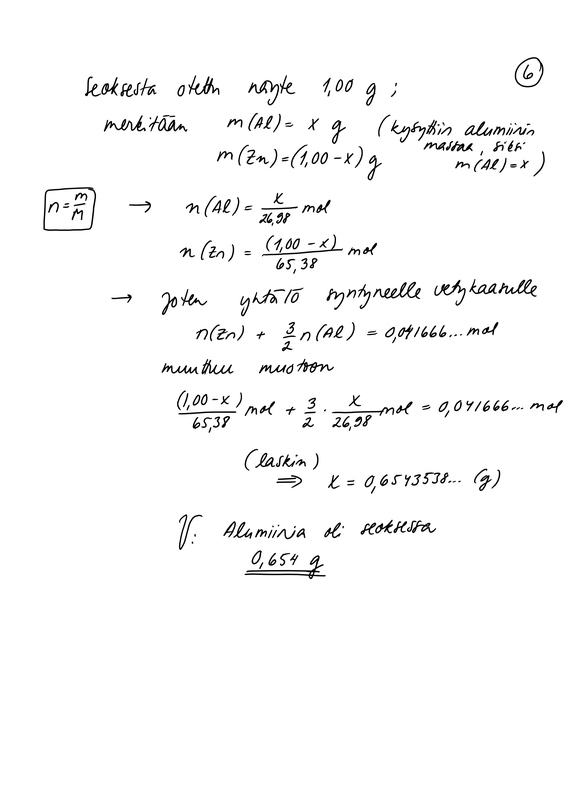 6
Seoksesta otettu näyte 1,00 g ;
merkitään m(Al) = x g (kysyttiin alumiinin massaa, siksi m(Al) = x)
m(Zn) = (1,00 - x) g
n = m/M → n(Al) = x/26,98 mol
n(Zn) = (1,00 - x)/65,38 mol
→ Joten yhtälö syntyneelle vetykaasulle
n(Zn) + 3/2 n(Al) = 0,041666... mol
muuttuu muotoon
(1,00 - x)/65,38 mol + 3/2 · x/26,98 mol = 0,041666... mol
(laskin)
⇒ x = 0,6543538... (g)
V: Alumiinia oli seoksessa
0,654 g